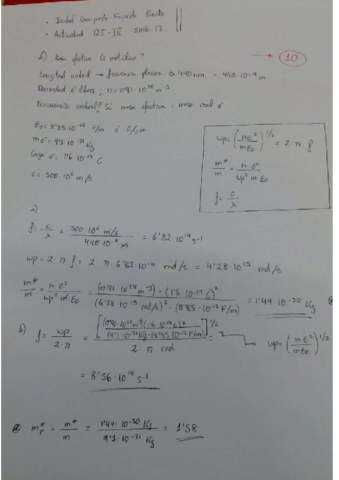 • Isabel
• Actividad 125-IV 2016-17
10
1) Masa efectiva
Longitud onda → frecuencia plasma → 440 nm = 440·10⁻⁹ m
Densidad é libres, n = 0'91·10²⁸ m⁻³
Si masa efectiva = masa real é
ε₀ = 8'85·10⁻¹² F/m ó C/
m é = 9'1·10⁻³¹ Kg
Carga é = 1'6·10⁻¹⁹ C
c = 300·10⁶ m/s
wp = (n e²/mε₀)^1/2 = 2·π·f
m*/m = n·e²/wp²·m·ε₀
f = c/λ
a)
f = c/λ = 300·10⁶ m/s / 440·10⁻⁹ m = 6'82·10¹⁴ s⁻¹
wp = 2·π·f = 2·π·6'82·10¹⁴ rad/s = 4'28·10¹⁵ rad/s
m*/m = n·e²/wp²·m·ε₀ = (0'91·10²⁸ m⁻³)·(1'6·10⁻¹⁹ C)² / (4'28·10¹⁵ rad/s)²·(8'85·10⁻¹² F/m) = 1'44·10⁻³⁰ Kg
b) f = wp/2·π = [(0'91·10²⁸ m⁻³)(1'6·10⁻¹⁹ C)² / (9'1·10⁻³¹ Kg)·(8'85·10⁻¹² F/m)]^1/2 / 2 π rad = wp = (n e²/mε₀)^1/2
= 8'56·10¹⁴ s⁻¹
m*r = m*/m = 1'44·10⁻³⁰ Kg / 9'1·10⁻³¹ Kg = 1'58